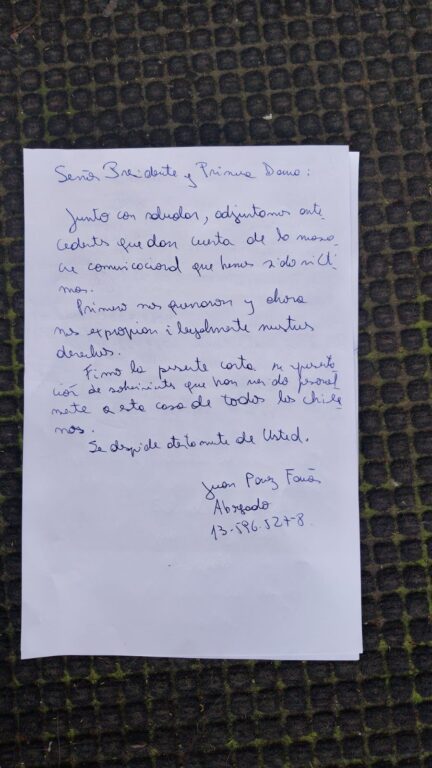 Señor Presidente y Primera Dama:
Junto con saludar, adjuntamos ante
cedentes que dan cuenta de la masa
cre comunicacional que hemos sido vícti
mas.
Primero nos quemaron y ahora
nos expropian ilegalmente nuestros
derechos.
Firmo la presente carta en
ción de sobrevivientes que han venido personal
mente a esta casa de todos los chile
nos.
Se despide atentamente de Usted.
Juan Pérez
Abogado
13.596.527-8